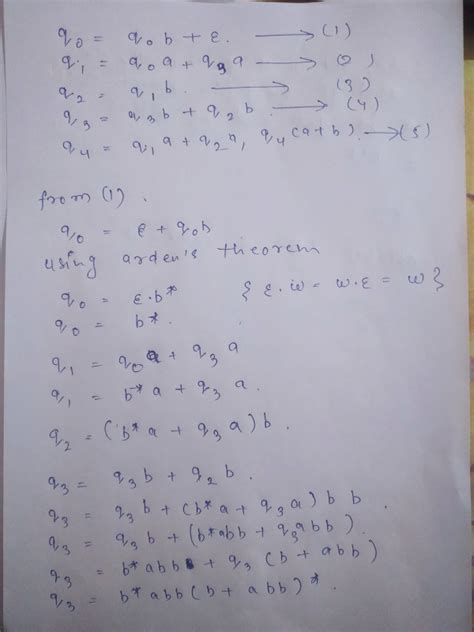 q₀ = q₀b + ε. ⟶ (1)
q₁ = q₀a + q₃a ⟶ (2)
q₂ = q₁b. ⟶ (3)
q₃ = q₃b + q₂b. ⟶ (4)
q₄ = q₁a + q₂a, q₄(a+b). ⟶ (5)
from (1).
q₀ = ε + q₀b
using arden's theorem
q₀ = ε.b* { ε.w = w.ε = w }
q₀ = b*.
q₁ = q₀a + q₃a
q₁ = b*a + q₃a.
q₂ = (b*a + q₃a)b.
q₃ = q₃b + q₂b.
q₃ = q₃b + (b*a + q₃a)bb.
q₃ = q₃b + (b*abb + q₃abb).
q₃ = b*abb + q₃(b + abb)
q₃ = b*abb(b + abb)*.